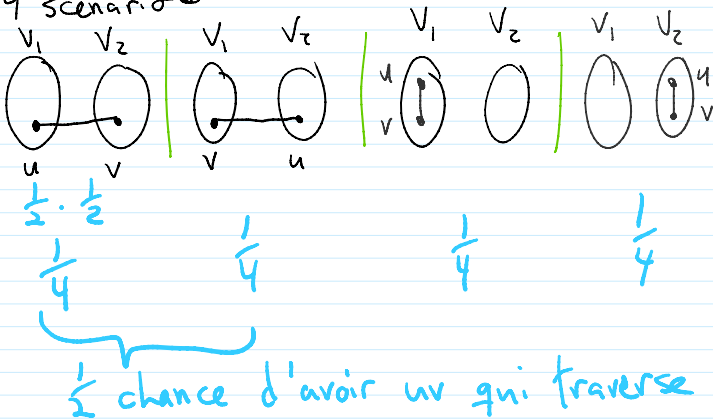 4 scenarios
V₁ V₂ V₁ V₂ V₁ V₂ V₁ V₂
u u
v v
u v v u
1/2 · 1/2
1/4 1/4 1/4 1/4
1/2 chance d'avoir uv qui traverse